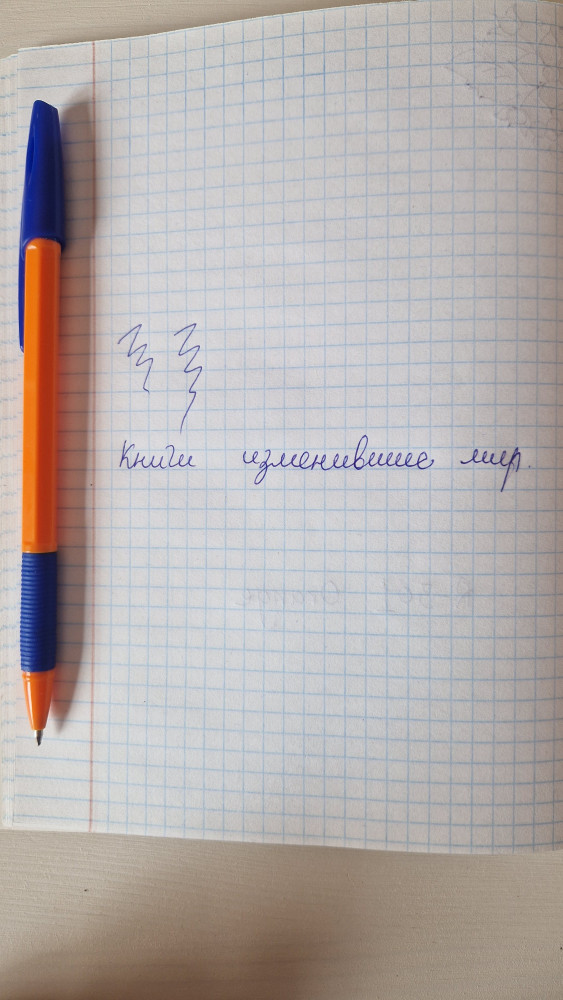 Книги изменившие мир.